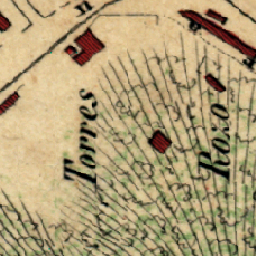 Torres
Rozo